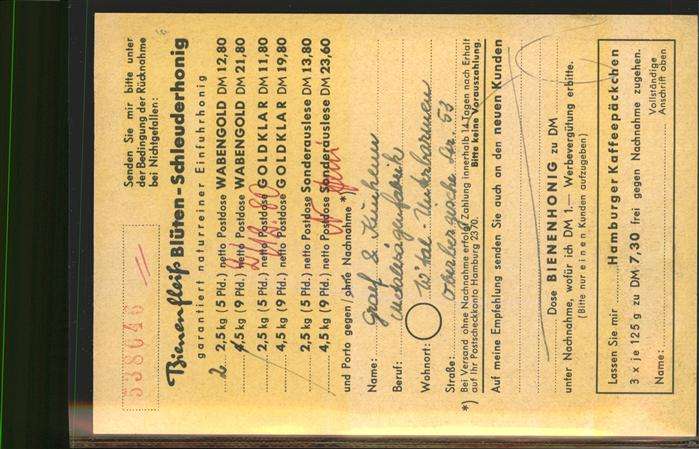 538646
Senden Sie mir bitte unter
der Bedingung der Rücknahme
bei Nichtgefallen:
Bienenfleiß Blüten-Schleuderhonig
garantiert naturreiner Einfuhrhonig
2 2,5 kg (5 Pfd.) netto Postdose WABENGOLD DM 12,80
4,5 kg (9 Pfd.) netto Postdose WABENGOLD DM 21,80
2,5 kg (5 Pfd.) netto Postdose GOLDKLAR DM 11,80
4,5 kg (9 Pfd.) netto Postdose GOLDKLAR DM 19,80
2,5 kg (5 Pfd.) netto Postdose Sonderauslese DM 13,80
4,5 kg (9 Pfd.) netto Postdose Sonderauslese DM 23,60
und Porto gegen / ohne Nachnahme *)
Name:
Beruf:
Wohnort: W'tal-Unterbarmen
Straße: Oberbergische Str. 53
*) Bei Versand ohne Nachnahme erfolgt Zahlung innerhalb 14 Tagen nach Erhalt
auf Ihr Postscheckkonto Hamburg 2370. Bitte keine Vorauszahlung.
Auf meine Empfehlung senden Sie auch an den neuen Kunden
Dose BIENENHONIG zu DM
unter Nachnahme, wofür ich DM 1.— Werbevergütung erbitte.
(Bitte nur einen Kunden aufzugeben)
Lassen Sie mir Hamburger Kaffeepäckchen
3 x je 125 g zu DM 7,30 frei gegen Nachnahme zugehen.
Name:
Vollständige
Anschrift oben